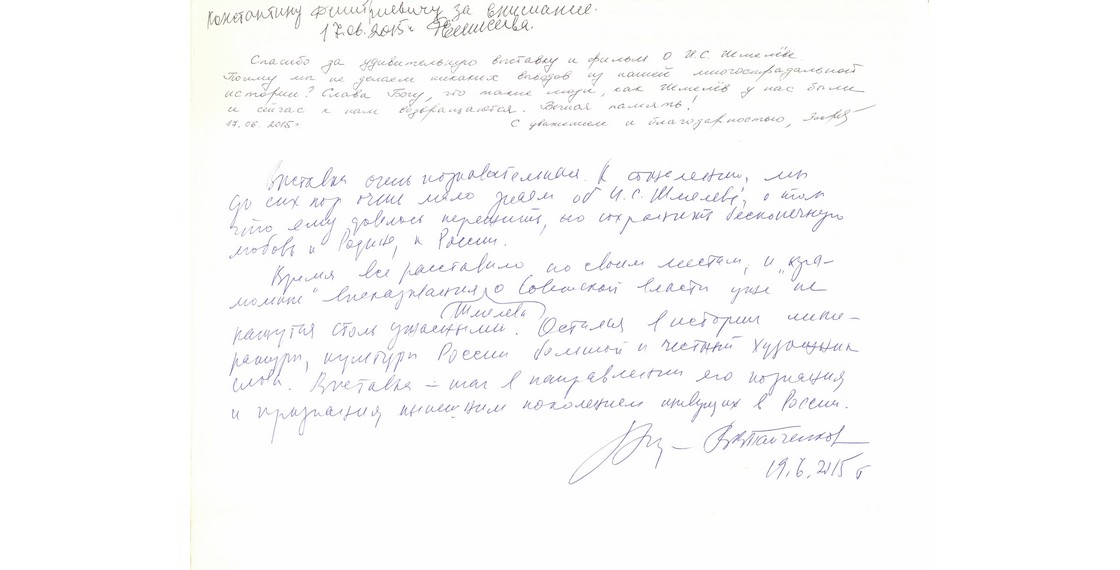 Константину Дмитриевичу за внимание.
17.06.2015г
Спасибо за удивительную выставку и фильм о И.С. Шмелёве
Почему мы не делаем никаких выводов из нашей многострадальной
истории? Слава Богу, что такие люди, как Шмелёв у нас были
и сейчас к нам возвращаются. Вечная память!
17.06.2015г С уважением и благодарностью,
Выставка очень познавательная. К сожалению, мы
до сих пор очень мало знаем об И.С. Шмелеве, о том
что ему довелось пережить, но сохранить бесконечную
любовь к Родине, к России.
Время все расставило по своим местам, и „кра-
мольные" высказывания о Советской власти уже не
Шмелева
кажутся столь ужасными. Остался в истории лите-
ратуры, культуры России большой и честный художник
слова. Выставка – шаг в направлении его познания
и признания нынешним поколением живущих в России.
19.6.2015 г